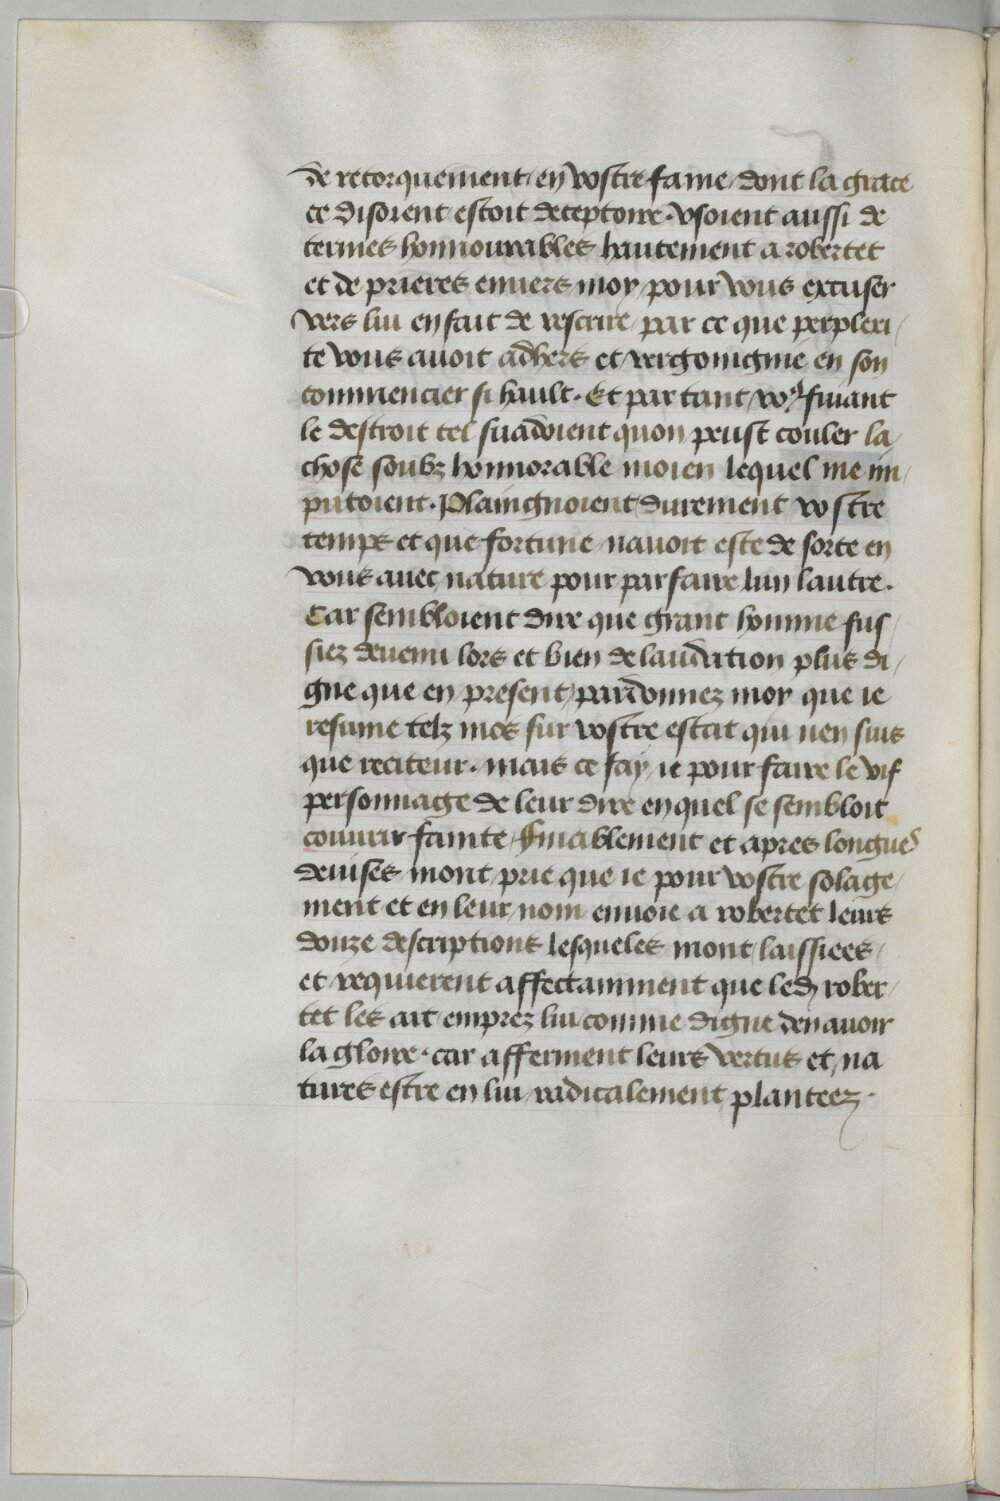 de retorquement en vostre fame dont la grace
ce disoient estoit deceptoire. Vsoient aussi de
termes honnourables hautement a robertet
et de prieres enuers moy pour vous excuser
vers lui en fait de rescrire par ce que perplexi/
te vous auoit adhers et vergoingnie en son
commencier si hault. Et par tant voꝰ fuiant
le destroit tel suadoient quon peust couler la
chose soubz honnorable moien lequel me im/
putoient. Plaingnoient durement vostre
temps et que fortune nauoit este de sorte en
vous auec nature pour parfaire lun lautre.
Car sembloient dire que grant homme fus/
siez deuenu lors et bien de laudation plus di/
gne que en present pardonnez moy que ie
resume telz mos sur vostre estat qui nen suis
que reciteur. mais ce fay ie pour faire le vif
personnage de leur dire en quel se sembloit
couurir fainte. Finablement et apres longues
deuises mont prie que ie pour vostre solage/
ment et en leur nom enuoie a robertet leurs
douze descriptions lesqueles mont laissiees/
et requierent affectamment que led rober/
tet les ait emprez lui comme digne den auoir
la gloire. car afferment leurs vertus et na
tures estre en lui radicalement planteez.